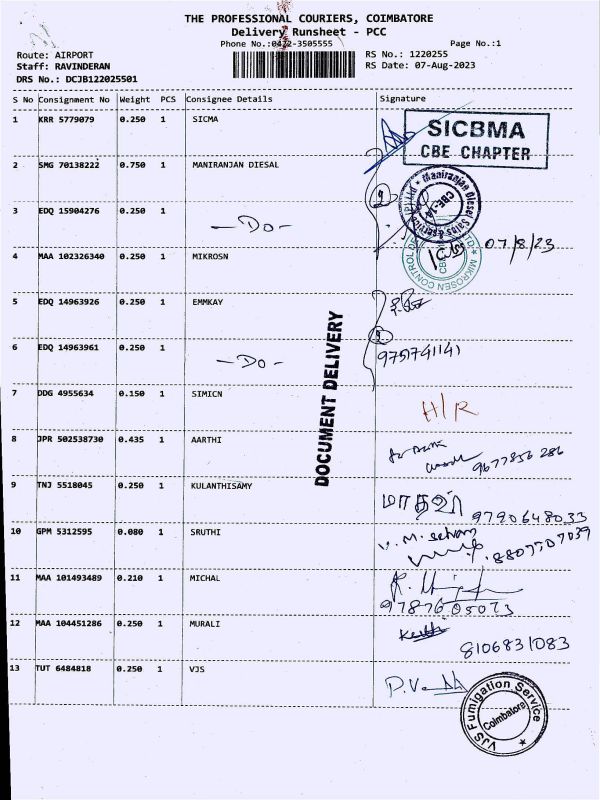 THE PROFESSIONAL COURIERS, COIMBATORE
Delivery Runsheet - PCC
Phone No.:0422-3505555 Page No.:1
Route: AIRPORT RS No.: 1220255
Staff: RAVINDERAN RS Date: 07-Aug-2023
DRS No.: DCJB122025501
S No Consignment No Weight PCS Consignee Details Signature
1 KRR 5779079 0.250 1 SICMA
SICBMA
CBE CHAPTER
2 SMG 70138222 0.750 1 MANIRANJAN DIESAL
3 EDQ 15904276 0.250 1 -Do-
07/8/23
4 MAA 102326340 0.250 1 MIKROSN
5 EDQ 14963926 0.250 1 EMMKAY
6 EDQ 14963961 0.250 1 -Do- 9751741141
DOCUMENT DELIVERY
7 DDG 4955634 0.150 1 SIMICN H/R
8 JPR 502538730 0.435 1 AARTHI 9677856286
9 TNJ 5518045 0.250 1 KULANTHISAMY மாதவி 9790648033
10 GPM 5312595 0.080 1 SRUTHI 8807507039
11 MAA 101493489 0.210 1 MICHAL 9787605073
12 MAA 104451286 0.250 1 MURALI 8106831083
13 TUT 6484818 0.250 1 VJS
VJS Fumigation Service
Coimbatore